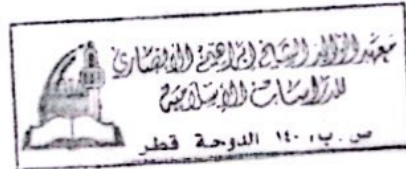 معهد الوالد الشيخ ابراهيم الانصاري
للدراسات الإسلامية
ص . ب ، ١٤٠ الدوحة قطر